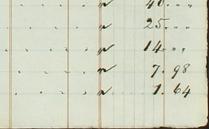 " 40 . "
" 25 . "
" 14 . "
" 7. 98
" 1. 64